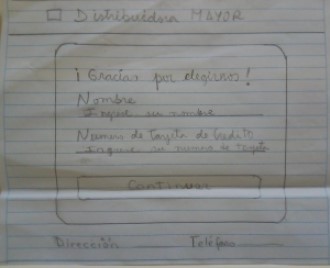 Distribuidora MAYOR
¡Gracias por elegirnos!
Nombre
Ingrese su nombre
Numero de Tarjeta de Credito
Ingrese su numero de Tarjeta
Continuar
Dirección Teléfono